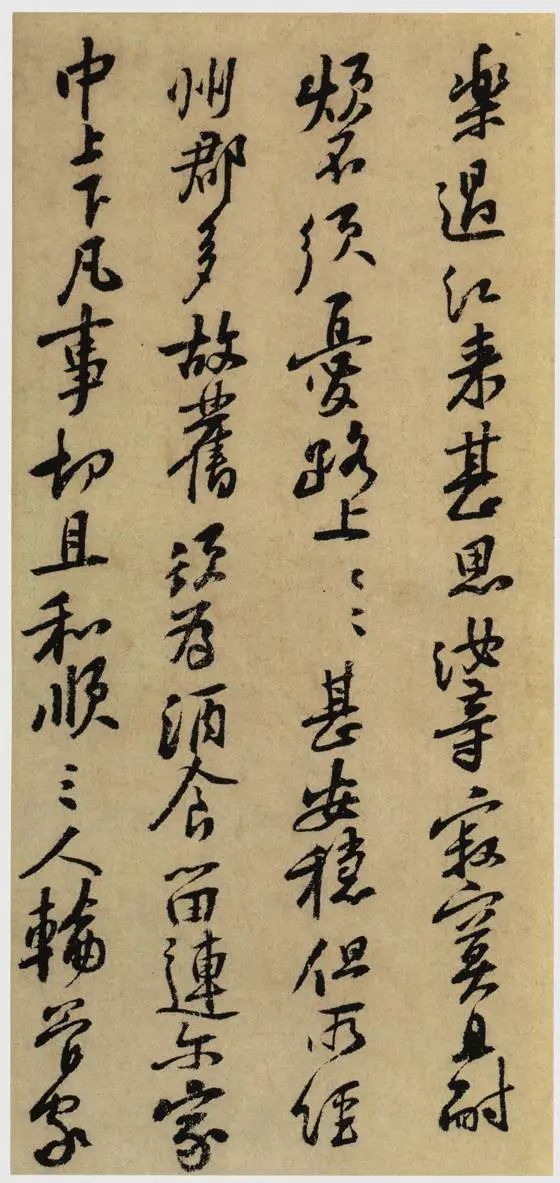 樂過江来甚思汝等寂寞且耐
煩不須憂路上〻〻甚安穩但所經
州郡多故舊頗為酒食留連尔家
中上下凡事切且和順三人輪管家